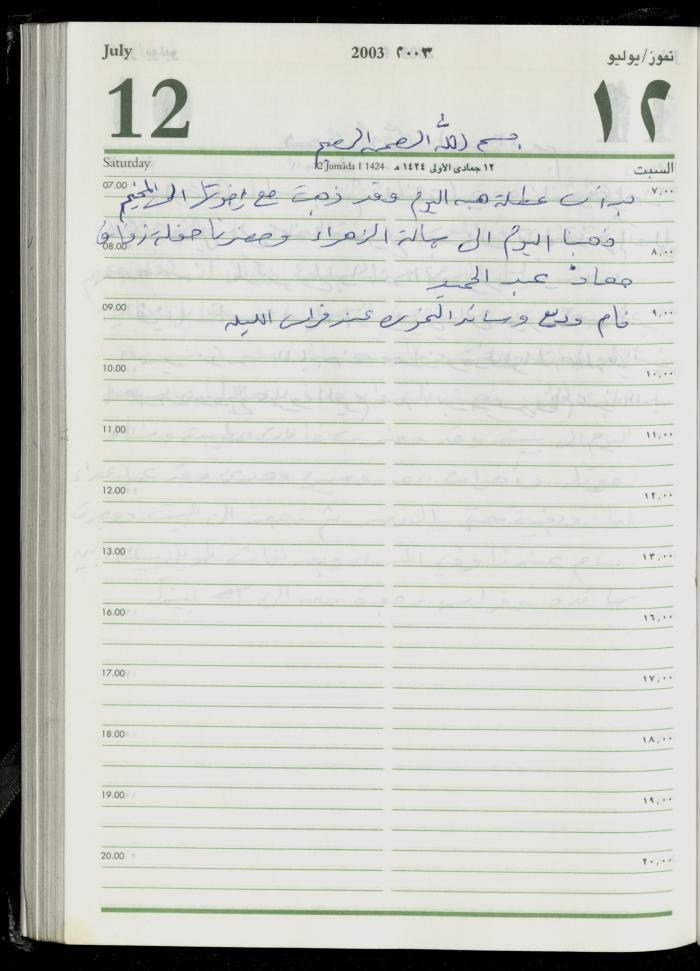 July 2003 ٢٠٠٣ تموز/يوليو
12 ١٢
بسم الله الرحمن الرحيم
Saturday 12 Jumada I 1424 ١٢ جمادى الأولى ١٤٢٤ هـ السبت
07.00 بدأت عطلة هبه اليوم وقد ذهبت مع إخوتها الى المخيم ٧,٠٠
ذهبنا اليوم الى صالة الزهراء وحضرنا حفلة زواج
08.00 ٨,٠٠
معاذ عبد الحميد
09.00 قام وديع عند فراس الليله ٩,٠٠
10.00 ١٠,٠٠
11.00 ١١,٠٠
12.00 ١٢,٠٠
13.00 ١٣,٠٠
16.00 ١٦,٠٠
17.00 ١٧,٠٠
18.00 ١٨,٠٠
19.00 ١٩,٠٠
20.00 ٢٠,٠٠